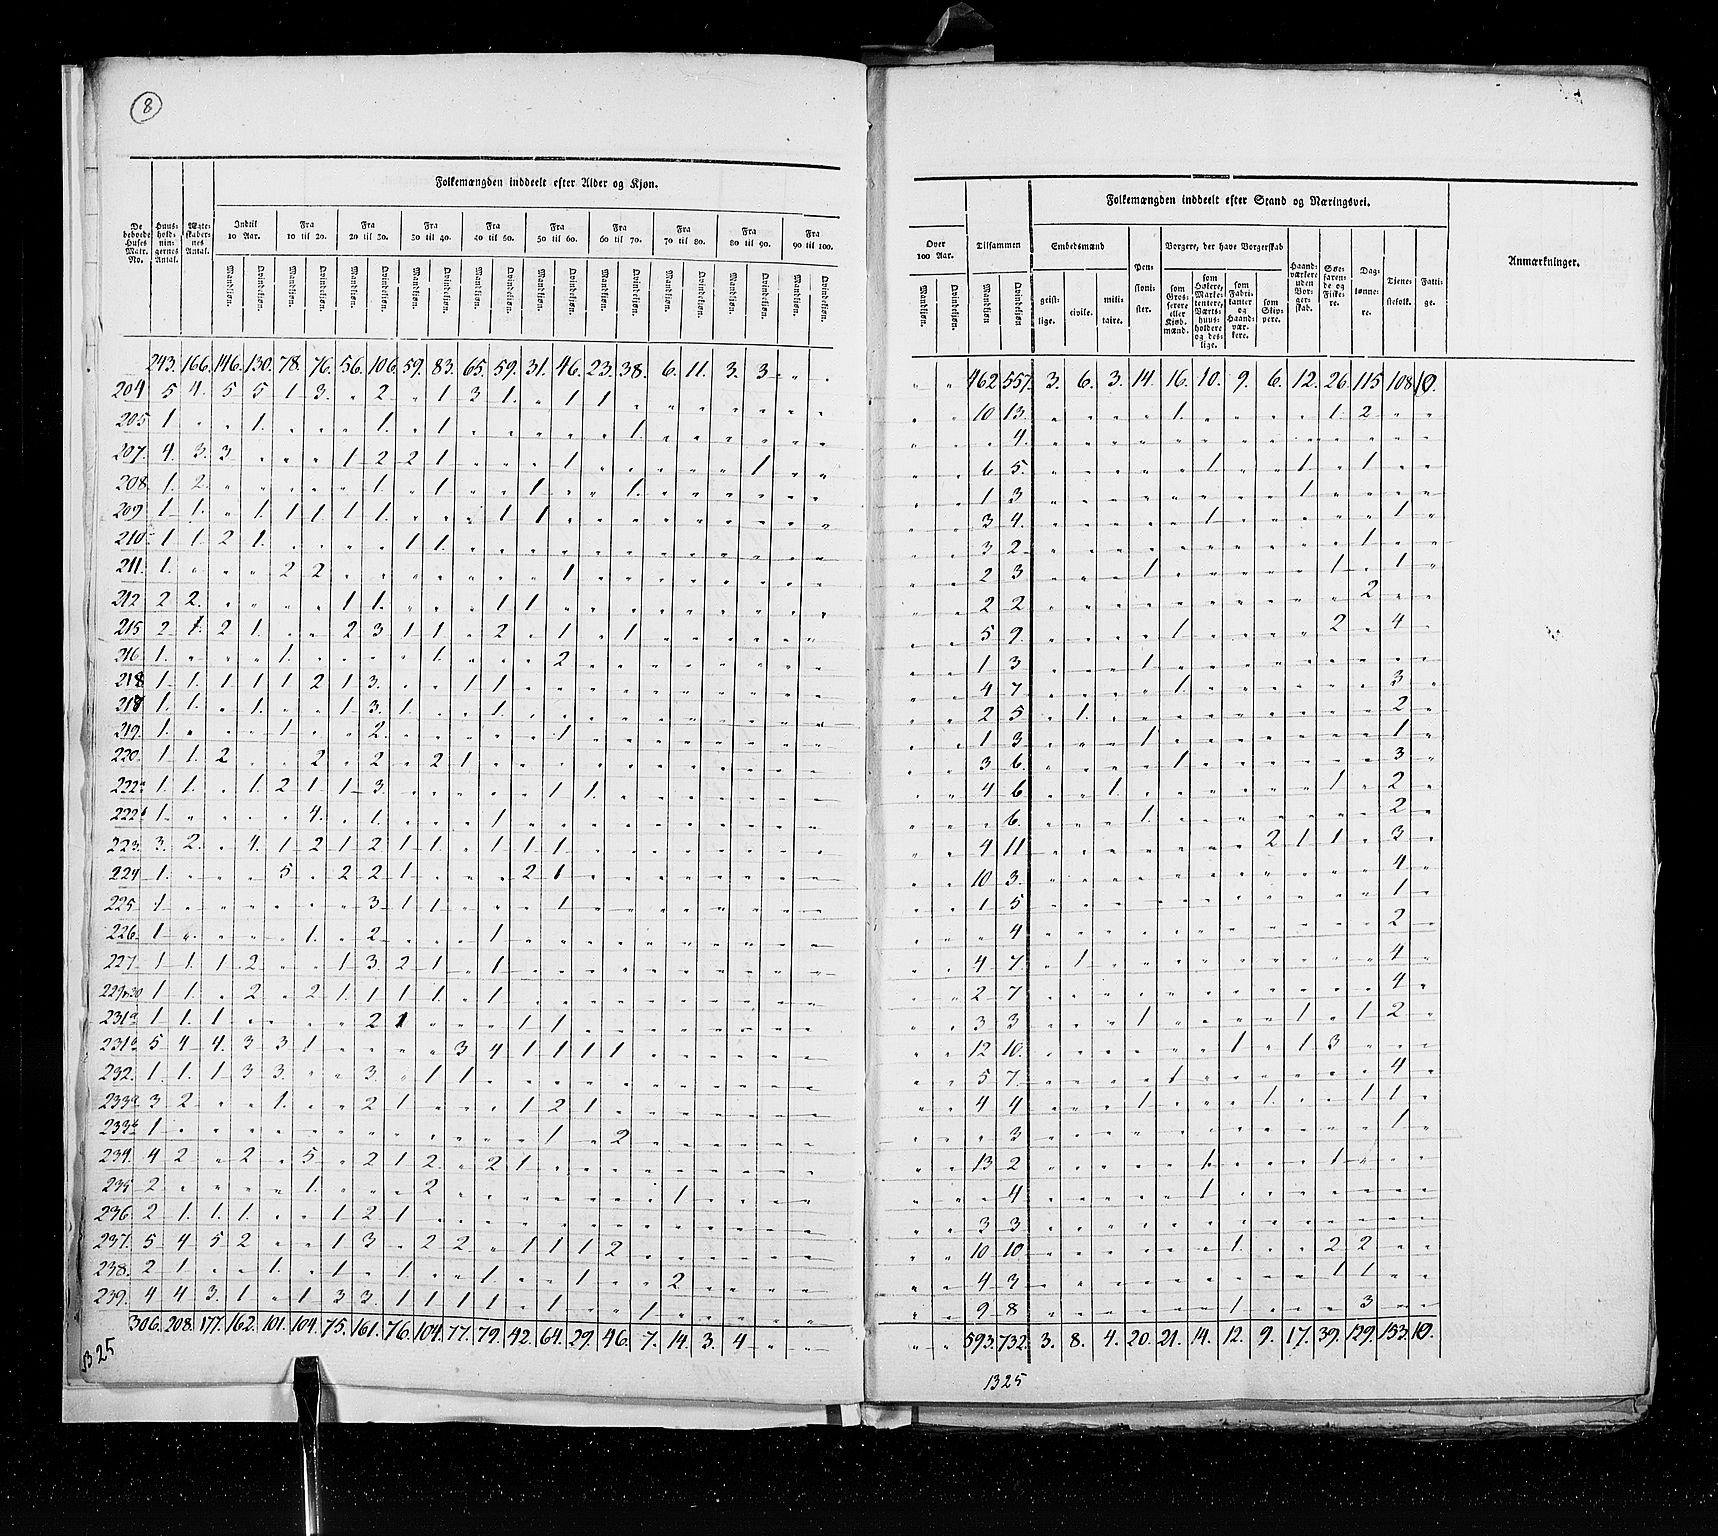 8
Folkemængden inddeelt efter Alder og Kjøn.
De beboede Huses Matr. No.
Huusholdningernes Antal.
Ægteskabernes Antal.
Indtil 10 Aar. Fra 10 til 20. Fra 20 til 30. Fra 30 til 40. Fra 40 til 50. Fra 50 til 60. Fra 60 til 70. Fra 70 til 80. Fra 80 til 90. Fra 90 til 100.
Mandkjøn. Qvindekjøn. Mandkjøn. Qvindekjøn. Mandkjøn. Qvindekjøn. Mandkjøn. Qvindekjøn. Mandkjøn. Qvindekjøn. Mandkjøn. Qvindekjøn. Mandkjøn. Qvindekjøn. Mandkjøn. Qvindekjøn. Mandkjøn. Qvindekjøn. Mandkjøn. Qvindekjøn.
243. 166. 146. 130. 78. 76. 56. 106. 59. 83. 65. 59. 31. 46. 23. 38. 6. 11. 3. 3 " "
204 5 4. 5 5 1 3. " 2 " 1 3 1. " 1 1
205 1 " " 1. " " " 1. " 1. " " " " " 1.
207. 4. 3. 3 " " " 1 2 2 1 " " " 1 " " " " " 1
208. 1. 2. " " " " " 1. " 1. " " 1 " " 1.
209 1 1. " 1 1 1. 1 1. " " " 1 1
210 1 1. 2 1. " " " " 1 1.
211. 1. " " " 2 2 " " " " " " " 1
212 2 2. " " " " 1 1. " " " 1 1
215 2 1. 2 1. " " 2 3 1 1. " 2 " 1 " 1
216 1. " " " 1. " " " " 1. " " " 2
218 1. 1. 1 1 1 2 1 3. " " 1 1
217 1. 1. " 1. " " 1 3. 1. " " 1.
219. 1. " " " 1 " " 2. " " " " " 1
220. 1 1. 2 " " 2 " 2 " 2 1
222a 1. 1. " 1. 2 1 1 3 " " " " " 1 1.
222b 1. " " " " 4. " 1. " " " 1
223. 3. 2. " 4. 1 2 1 2 1 1. " 1 1 1
224 1. " " " 5 " 2 2 1 " " " 2 1
225 1 " " " " " " 3 1 1 " " " 1
226 1 " " " " 1. " 2 " " " 1
227 1 1. 1 2 " " 1 3 2 1 " 1
229&30 1 1. " 2 " 2 1. 1 1 1. " 1
231a 1 1. 1 " " " " 2 1 " " " 1 1
231b 5 4 4. 3 3 1 " " " " 3 4 1 1 1 1
232. 1. 1. 1 3 3. " " 3. " 1 1.
233a 3 2 " " 1. " " 2 1 " " " 1 2 1
233b 1 " " " " " " " " " " " " 1 " 2
234. 4 2 " 2 " 5 " 2 1 2. " 2 1
235 2 " " " " 1. " " " 2 " " " " " " " 1
236 2 1. 1. 1. " " 1 2 1
237. 5 4 5 2 " " 1 3 " 2 2 " 1 1 1 2
238. 2 1 " " 1. " 1 " 1. " " 1. " " 1 " " 2
239. 4 4 3. 1 " 1 3 3. 1 1 1 1 " 1 " " 1
306. 208. 177. 162. 101. 104. 75. 161. 76. 104. 77. 79. 42. 64. 29. 46. 7. 14. 3. 4 " "
1325
Folkemængden inddeelt efter Stand og Næringsvei.
Anmærkninger.
Over 100 Aar.
Tilsammen
Embedsmænd
Pensionister.
Borgere, der have Borgerskab
Haandværkere uden Borgerskab.
Søefarende og Fiskere.
Daglønnere.
Tjenestefolk.
Fattige.
Mandkjøn. Qvindekjøn. Mandkjøn Qvindekjøn
geistlige. civile. militaire.
som Grosserere eller Kjøbmænd.
som Høkere, Marketentere, Værtshuusholdere og deslige.
som Fabrikanter og Haandværkere.
som Skippere.
" " 462 557. 3. 6. 3. 14. 16. 10. 9. 6. 12. 26. 115 108 10.
" " 10 13. " " " " 1. " " " " 1. 2 " "
" " " 4. " " " " " " " " " " " " "
" " 6 5. " " " " " 1 " " 1 " 1 " "
" " 1 3 " " " " " " " " 1. " " " "
" " 3 4. " " " " " 1. " " " " " 1. "
" " 3 2 " " " " " " " " " " 1. " "
" " 2 3 " " " 1 " " " " " 1 " 1 "
" " 2 2 " " " " " " " " " " 2 " "
" " 5 9. " " " " 1 " " " " 2 " 4 "
" " 1 3 " " " 1 " " " " " " " " "
" " 4 7 " " " " 1. " " " " " " 3 "
" " 2 5 " 1. " " " " " " " " " 2 "
" " 1 3 " " " 1 " " " " " " " 1 "
" " 3 6. " " " " 1 " " " " " " 3 "
" " 4 6 " " 1. " " " " " " 1 " 2 "
" " " 6. " " " 1. " " " " " " " 2 "
" " 4 11 " " " " " " " 2 1 1 " 3 "
" " 10 3. " " " " " " " " " " " 4 "
" " 1 5 " " " " " " " " " " " 1 "
" " " 4 " " " " " " " " " " " 2 "
" " 4 7. " 1 " " " " " " " " " 4 "
" " 2 7 " " " " " " " " " " " 4 "
" " 3 3 " " " 1 " " " " 1 " 1 2 "
" " 12 10. " " " " " " 1 " 1 3 " " "
" " 5 7. " " " " 1 " " " " " " 4 "
" " 4 4 " " " 1 " " " 1. " " 1 1 "
" " " 3 " " " " " " " " " " " 1 "
" " 13 2 " " " " " 1. " " " 1 " " "
" " " 4 " " " " " 1 " " " " " " "
" " 3 3 " " " " " " " " " " " " "
" " 10 10 " " " " " " 1. " " 2 2 " "
" " 4 3 " " " " " " " " " 1 1 " "
" " 9 8 " " " " " " 1 " " " 3 " "
" " 593. 732. 3. 8. 4. 20. 21. 14. 12. 9. 17. 39. 129. 153. 10.
1325